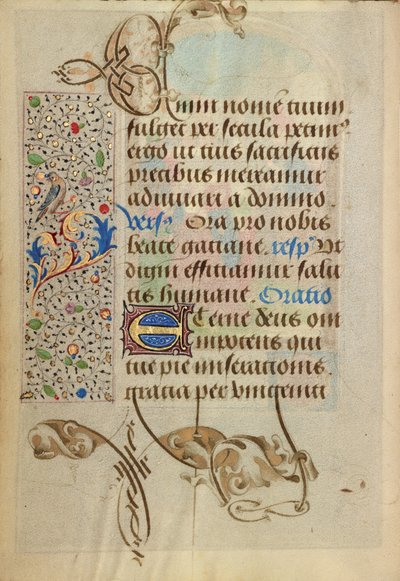 nomē tuum
fulget per secula petimꝰ
ergo ut tuis sacrificiis
precibus mereamur
adiuuari a domino.
versꝰ Ora pro nobis
beate gaciane. respꝰ Vt
digni efficiamur salu
tis humane. Oratio
Eterne deus om
nipotens qui
tue pie miseracionis.
gratia per vincenti